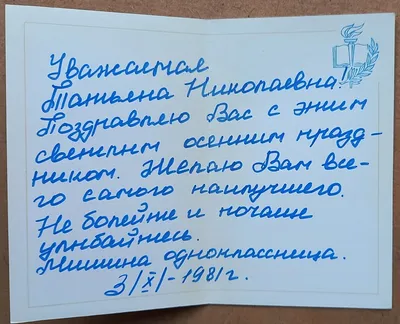 Уважаемая
Татьяна Николаевна!
Поздравляю Вас с этим
светлым осенним празд-
ником. Желаю Вам все-
го самого наилучшего.
Не болейте и почаще
улыбайтесь.
Мишина одноклассница.
3/X/-1981г.